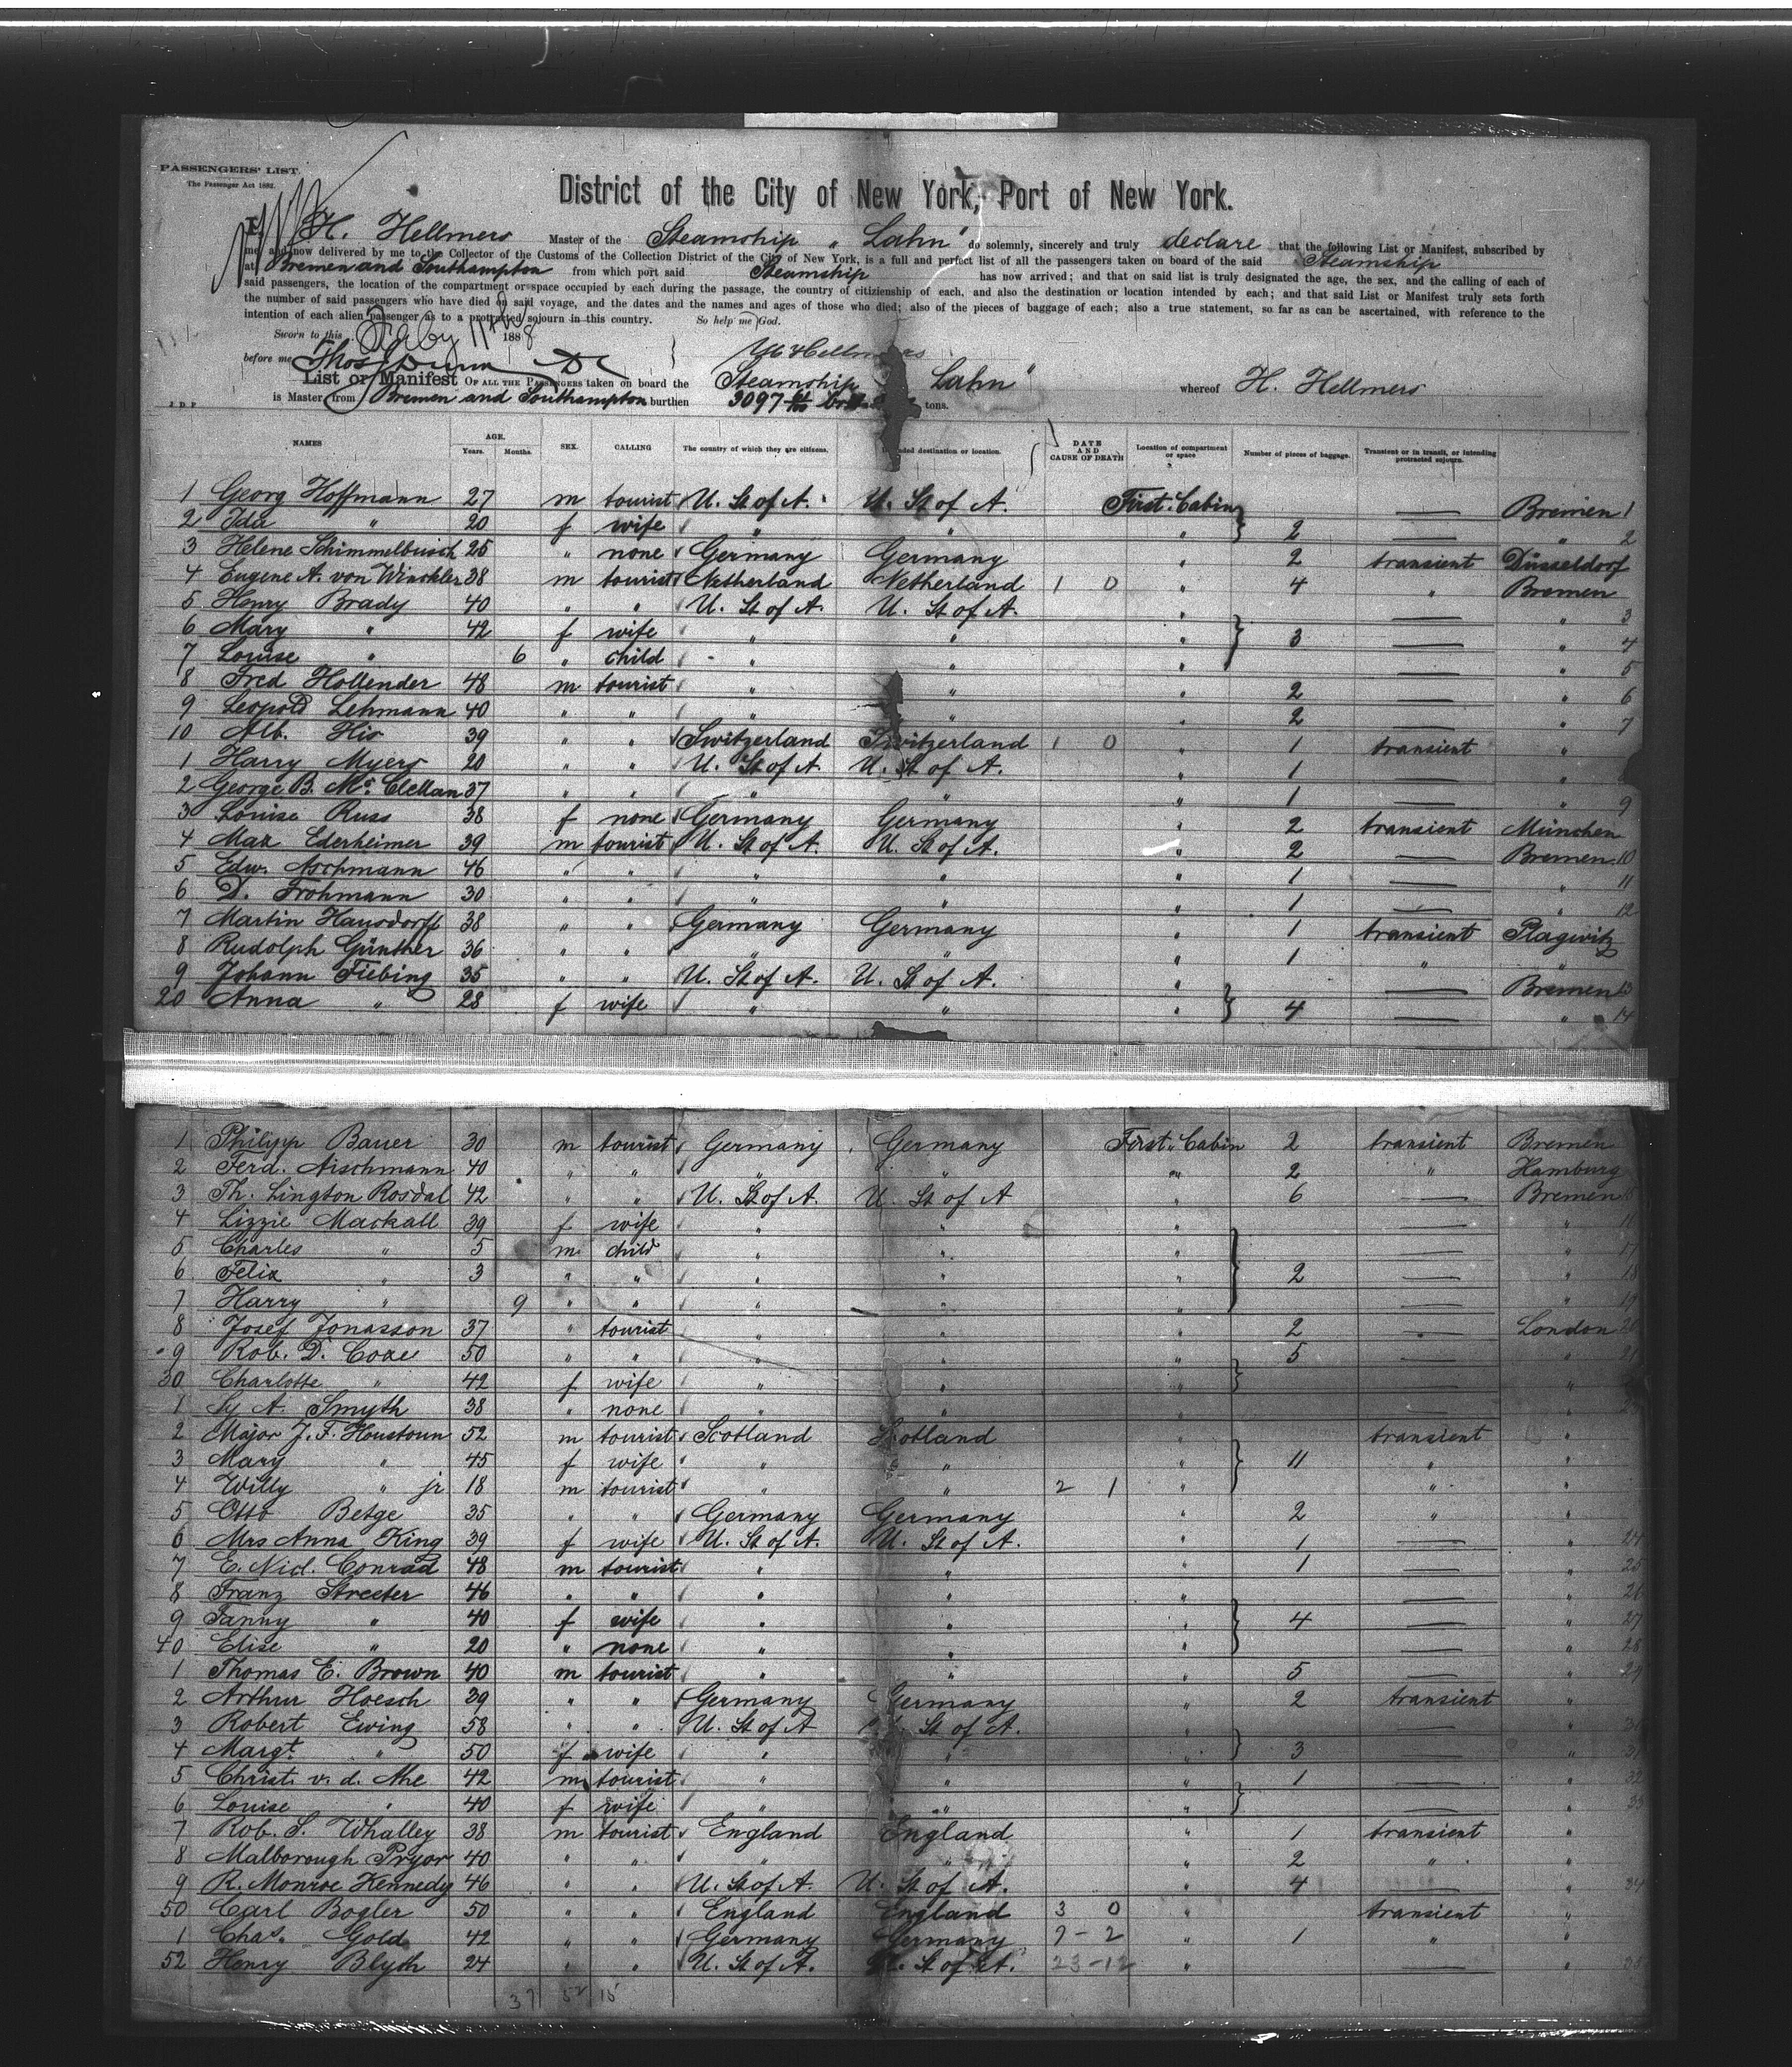 PASSENGERS' LIST.
The Passenger Act 1882.
District of the City of New York, Port of New York.
I, H. Hellmers Master of the Steamship „ Lahn" do solemnly, sincerely and truly declare that the following List or Manifest, subscribed by
me and now delivered by me to the Collector of the Customs of the Collection District of the City of New York, is a full and perfect list of all the passengers taken on board of the said Steamship
at Bremen and Southampton from which port said Steamship has now arrived; and that on said list is truly designated the age, the sex, and the calling of each of
said passengers, the location of the compartment or space occupied by each during the passage, the country of citizienship of each, and also the destination or location intended by each; and that said List or Manifest truly sets forth
the number of said passengers who have died on said voyage, and the dates and the names and ages of those who died; also of the pieces of baggage of each; also a true statement, so far as can be ascertained, with reference to the
intention of each alien passenger as to a protracted sojourn in this country. So help me God.
Sworn to this Feby 11th 1888
before me Thos Dunn
H Hellmers
List or Manifest OF ALL THE PASSENGERS taken on board the Steamship Lahn" whereof H. Hellmers
is Master from Bremen and Southampton burthen 3097 tons.
J D P
NAMES AGE. Years. Months. SEX. CALLING The country of which they are citizens. nded destination or location. DATE AND CAUSE OF DEATH Location of compartment or space Number of pieces of baggage. Transient or in transit, or intending protracted sojourn.
1 Georg Hoffmann 27 m tourist U. St of A. U. St of A. First Cabin — Bremen 1
2 Ida " 20 f wife " " " 2 — " 2
3 Helene Schimmelbusch 25 " none Germany Germany " 2 transient Düsseldorf
4 Eugene A. von Winckler 38 m tourist Netherland Netherland 1 0 " 4 " Bremen
5 Henry Brady 40 " " U. St of A. U. St of A. " — " 3
6 Mary " 42 f wife " " " 3 — " 4
7 Louise " 6 " child " " " — " 5
8 Fred Hollender 48 m tourist " " " 2 — " 6
9 Leopold Lehmann 40 " " " " " 2 — " 7
10 Alb. His 39 " " Switzerland Switzerland 1 0 " 1 transient "
1 Harry Myers 20 " " U. St of A. U. St of A. " 1 — "
2 George B. Mc. Clellan 37 " " " " " 1 — " 9
3 Louise Russ 38 f none Germany Germany " 2 transient München
4 Max Ederheimer 39 m tourist U. St of A. U. St of A. " 2 — Bremen 10
5 Edw. Aschmann 46 " " " " " 1 — " 11
6 D. Frohmann 30 " " " " " 1 — " 12
7 Martin Hausdorff 38 " " Germany Germany " 1 transient Plagwitz
8 Rudolph Günther 36 " " " " " 1 " "
9 Johann Fiebing 35 " " U. St of A. U. St of A. " — Bremen 13
20 Anna " 28 f wife " " " 4 — " 14
1 Philipp Bauer 30 m tourist Germany Germany First Cabin 2 transient Bremen
2 Ferd. Aischmann 40 " " " " " 2 " Hamburg
3 Th. Lington Rosdal 42 " " U. St of A. U. St of A " 6 — Bremen 15
4 Lizzie Mackall 39 f wife " " " — " 16
5 Charles " 5 m child " " " — " 17
6 Felix " 3 " " " " " 2 — " 18
7 Harry " 9 " " " " " — " 19
8 Josef Jonasson 37 " tourist " " " 2 — London 20
9 Rob. D. Coxe 50 " " " " " 5 — " 21
30 Charlotte " 42 f wife " " " — "
1 Sy A. Smyth 38 " none " " " — "
2 Major J. F. Houstoun 52 m tourist Scotland Scotland " transient "
3 Mary " 45 f wife " " " 11 " "
4 Willy " jr 18 m tourist " " 2 1 " " "
5 Otto Betge 35 " " Germany Germany " 2 " "
6 Mrs Anna King 39 f wife U. St of A. U. St of A. " 1 — " 24
7 E. Nicl. Conrad 48 m tourist " " " 1 — " 25
8 Franz Streeter 46 " " " " " — " 26
9 Fanny " 40 f wife " " " 4 — " 27
40 Elise " 20 " none " " " — " 28
1 Thomas E. Brown 40 m tourist " " " 5 — " 29
2 Arthur Hoesch 39 " " Germany Germany " 2 transient "
3 Robert Ewing 58 " " U. St of A U. St of A. " — " 30
4 Margt. " 50 f wife " " " 3 — " 31
5 Christ. v. d. Ahe 42 m tourist " " " 1 — " 32
6 Louise " 40 f wife " " " — " 33
7 Rob. S. Whalley 38 m tourist England England " 1 transient "
8 Malborough Pryor 40 " " " " " 2 " "
9 R. Monroe Kennedy 46 " " U. St of A. U. St of A. " 4 — " 34
50 Carl Bogler 50 " " England England 3 0 " transient "
1 Chas. Gold 42 " " Germany Germany 7 - 2 " 1 " "
52 Henry Blyth 24 " " U. St of A. U. St of A. 23 - 12 " — " 35
37 52 15